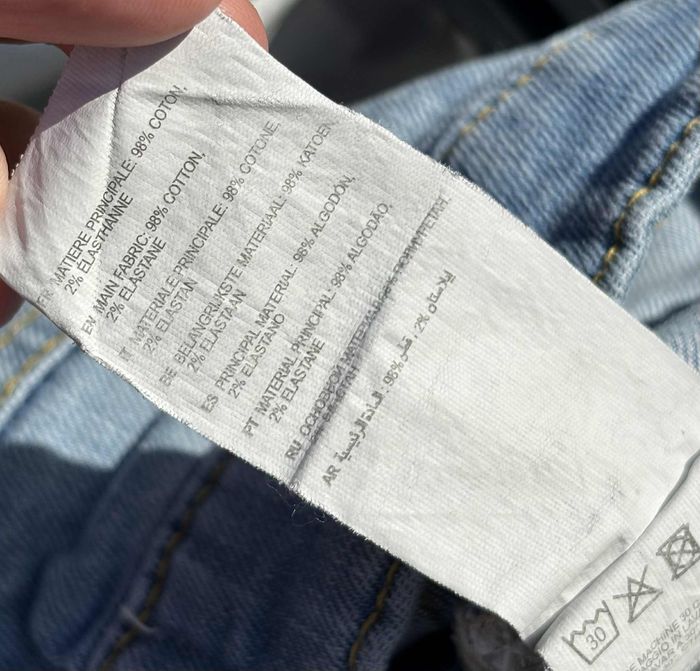 FR MATIERE PRINCIPALE: 98% COTON,
2% ELASTHANNE
EN MAIN FABRIC: 98% COTTON,
2% ELASTANE
IT MATERIALE PRINCIPALE: 98% COTONE,
2% ELASTAN
BE BELANGRIJKSTE MATERIAAL: 98% KATOEN
2% ELASTAAN
ES PRINCIPAL MATERIAL: 98% ALGODÓN,
2% ELASTANO
PT MATERIAL PRINCIPAL: 98% ALGODÃO,
2% ELASTANE
RU ОСНОВНОЙ
AR المادة الرئيسية: 98% قطن, 2% إيلاستان
30
MACHINE 30